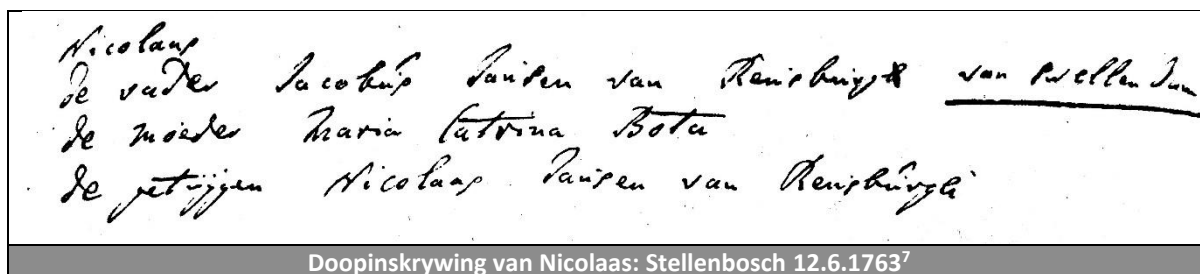 Nicolaas
de vader Jacobus Jansen van Rensburgh van Swellendam
de moeder Maria Catrina Bota
de getuijgen Nicolaas Jansen van Rensburgh
Doopinskrywing van Nicolaas: Stellenbosch 12.6.1763⁷